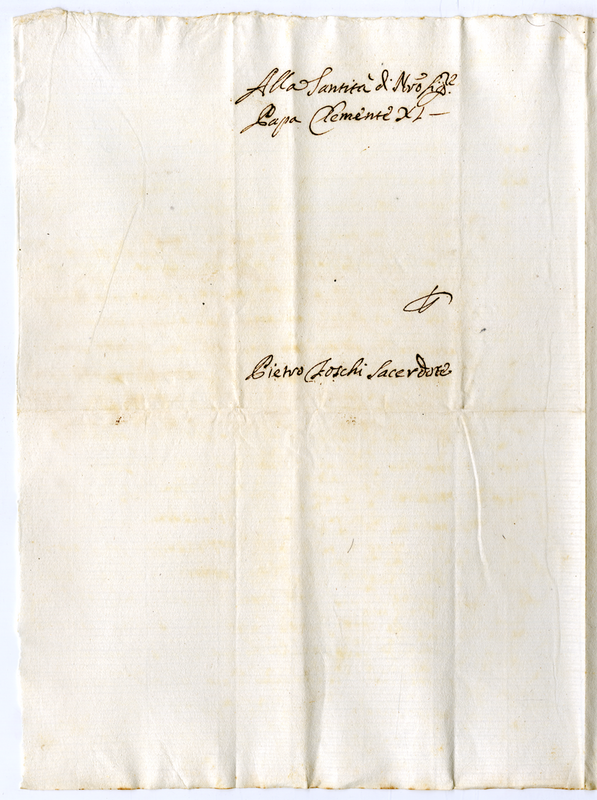 Alla Santità di Nrõ Sig.re
Papa Clemente XI
Pietro Foschi Sacerdote